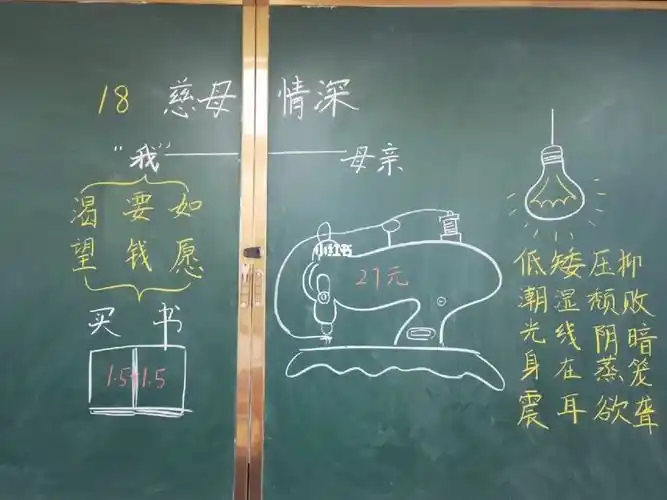 18 慈母情深
“我”——母亲
渴望
要钱
如愿
买书
1.5+1.5
小红书
27元
低矮压抑
潮湿颓败
光线阴暗
身在蒸笼
震耳欲聋